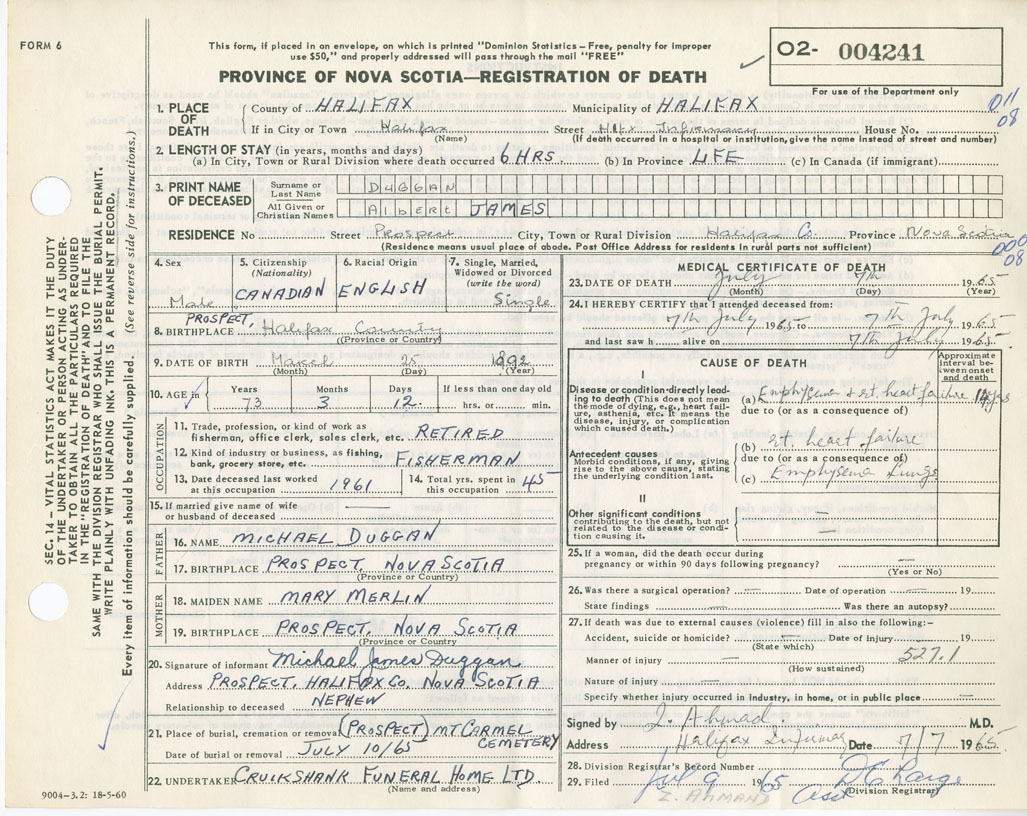 FORM 6
This form, if placed in an envelope, on which is printed "Dominion Statistics – Free, penalty for improper
use $50," and properly addressed will pass through the mail "FREE"
02- 004241
PROVINCE OF NOVA SCOTIA—REGISTRATION OF DEATH
For use of the Department only
011
08
1. PLACE OF DEATH County of HALIFAX Municipality of HALIFAX
If in City or Town Halifax Street Hlfx Infirmary House No.
(Name) (If death occurred in a hospital or institution, give the name instead of street and number)
2. LENGTH OF STAY (in years, months and days)
(a) In City, Town or Rural Division where death occurred 6 HRS. (b) In Province LIFE (c) In Canada (if immigrant)
3. PRINT NAME OF DECEASED Surname or Last Name DUGGAN
All Given or Christian Names Albert JAMES
RESIDENCE No Street Prospect City, Town or Rural Division Halifax Co. Province Nova Scotia
(Residence means usual place of abode. Post Office Address for residents in rural parts not sufficient)
000
08
SEC. 14 – VITAL STATISTICS ACT MAKES IT THE DUTY
OF THE UNDERTAKER OR PERSON ACTING AS UNDER-
TAKER TO OBTAIN ALL THE PARTICULARS REQUIRED
IN THE "REGISTRATION OF DEATH" AND FILE THE
SAME WITH THE DIVISION REGISTRAR WHO SHALL ISSUE THE BURIAL PERMIT.
WRITE PLAINLY WITH UNFADING INK. THIS IS A PERMANENT RECORD.
Every item of information should be carefully supplied. (See reverse side for instructions.)
4. Sex Male
5. Citizenship (Nationality) CANADIAN
6. Racial Origin ENGLISH
7. Single, Married, Widowed or Divorced (write the word) Single
8. BIRTHPLACE PROSPECT, Halifax County
(Province or Country)
9. DATE OF BIRTH March 25 1892
(Month) (Day) (Year)
10. AGE in Years 73 Months 3 Days 12. If less than one day old hrs. or min.
OCCUPATION
11. Trade, profession, or kind of work as
fisherman, office clerk, sales clerk, etc. RETIRED
12. Kind of industry or business, as fishing,
bank, grocery store, etc. FISHERMAN
13. Date deceased last worked at this occupation 1961
14. Total yrs. spent in this occupation 45
15. If married give name of wife or husband of deceased —
FATHER
16. NAME MICHAEL DUGGAN
17. BIRTHPLACE PROSPECT, NOVA SCOTIA
(Province or Country)
MOTHER
18. MAIDEN NAME MARY MERLIN
19. BIRTHPLACE PROSPECT, NOVA SCOTIA
(Province or Country)
20. Signature of informant Michael James Duggan
Address PROSPECT, HALIFAX CO. NOVA SCOTIA
Relationship to deceased NEPHEW
21. Place of burial, cremation or removal (PROSPECT) MT CARMEL CEMETERY
Date of burial or removal JULY 10/65
22. UNDERTAKER CRUIKSHANK FUNERAL HOME LTD.
(Name and address)
9004-3.2: 18-5-60
MEDICAL CERTIFICATE OF DEATH
23. DATE OF DEATH July 7th 1965
(Month) (Day) (Year)
24. I HEREBY CERTIFY that I attended deceased from:
7th July 1965 to 7th July 1965
and last saw h alive on 7th July 1965.
CAUSE OF DEATH
Approximate interval between onset and death
I
Disease or condition directly leading to death (This does not
mean the mode of dying, e.g., heart failure, asthenia, etc. It means the
disease, injury, or complication which caused death.)
(a) Emphysema & rt. heart failure yrs
due to (or as a consequence of)
Antecedent causes
Morbid conditions, if any, giving rise to the above cause, stating
the underlying condition last.
(b) rt. heart failure
due to (or as a consequence of)
(c) Emphysema Lungs
II
Other significant conditions
contributing to the death, but not related to the disease or condition causing it. —
—
25. If a woman, did the death occur during
pregnancy or within 90 days following pregnancy? —
(Yes or No)
26. Was there a surgical operation? — Date of operation — 19
State findings — Was there an autopsy?
27. If death was due to external causes (violence) fill in also the following:–
Accident, suicide or homicide? — Date of injury 19
(State which) 527.1
Manner of injury —
(How sustained)
Nature of injury —
Specify whether injury occurred in industry, in home, or in public place —
Signed by I. Ahmad. M.D.
Address Halifax Infirmary Date 7/7 1965.
28. Division Registrar's Record Number
29. Filed Jul 9 1965
(Division Registrar)
Z. AHMAND